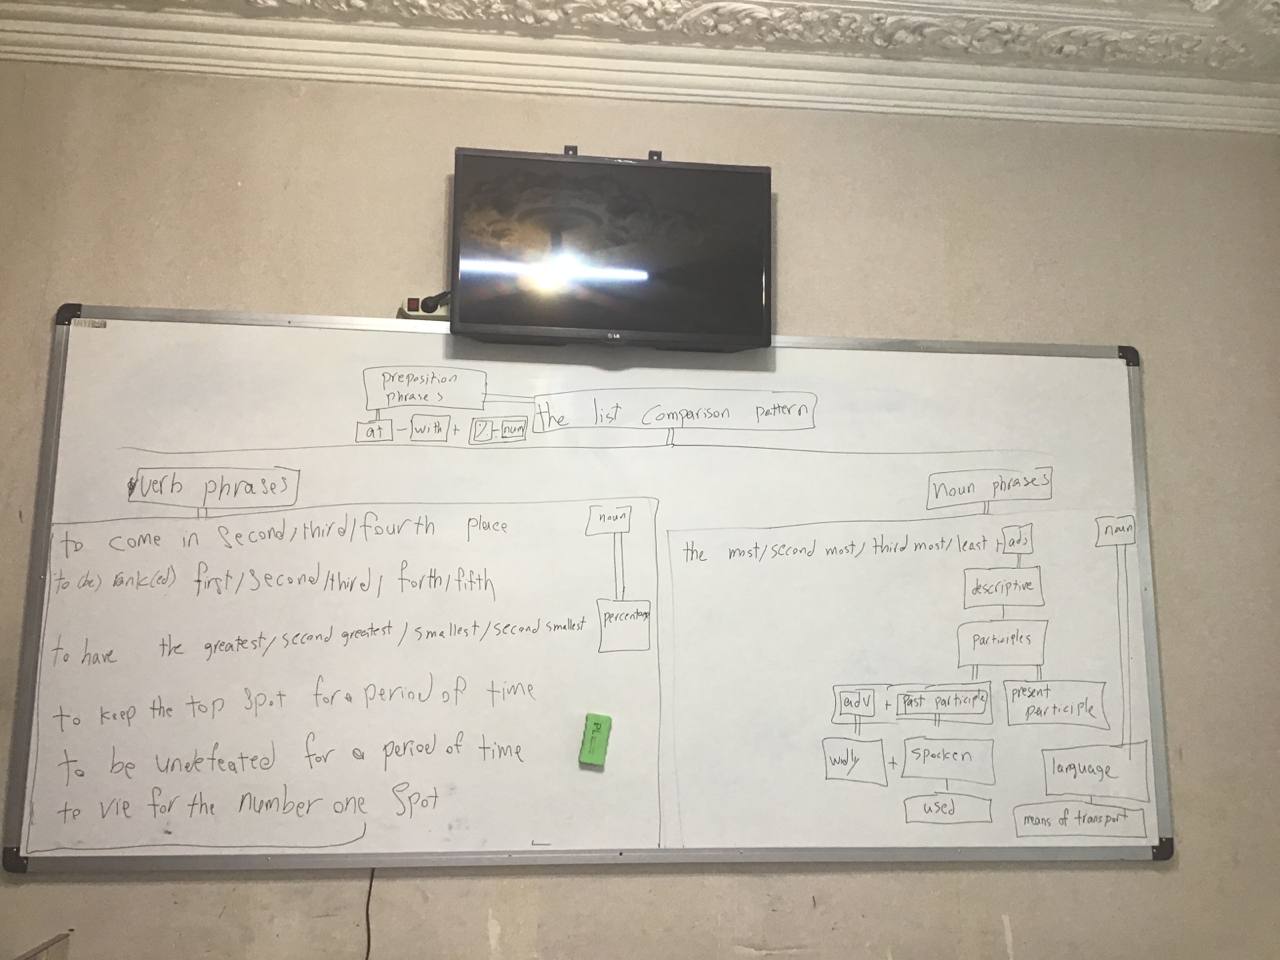 LG
preposition
phrases
the list comparison pattern
at - with + % - num
verb phrases
noun phrases
to come in second/third/fourth place
noun
to (be) rank(ed) first/second/third/ forth/fifth
to have the greatest/second greatest/smallest/second smallest
percentage
to keep the top spot for a period of time
to be undefeated for a period of time
to vie for the number one spot
the most/second most/third most/least + adj
noun
descriptive
participles
adv + past participle
present
participle
widly + spocken
used
language
means of transport